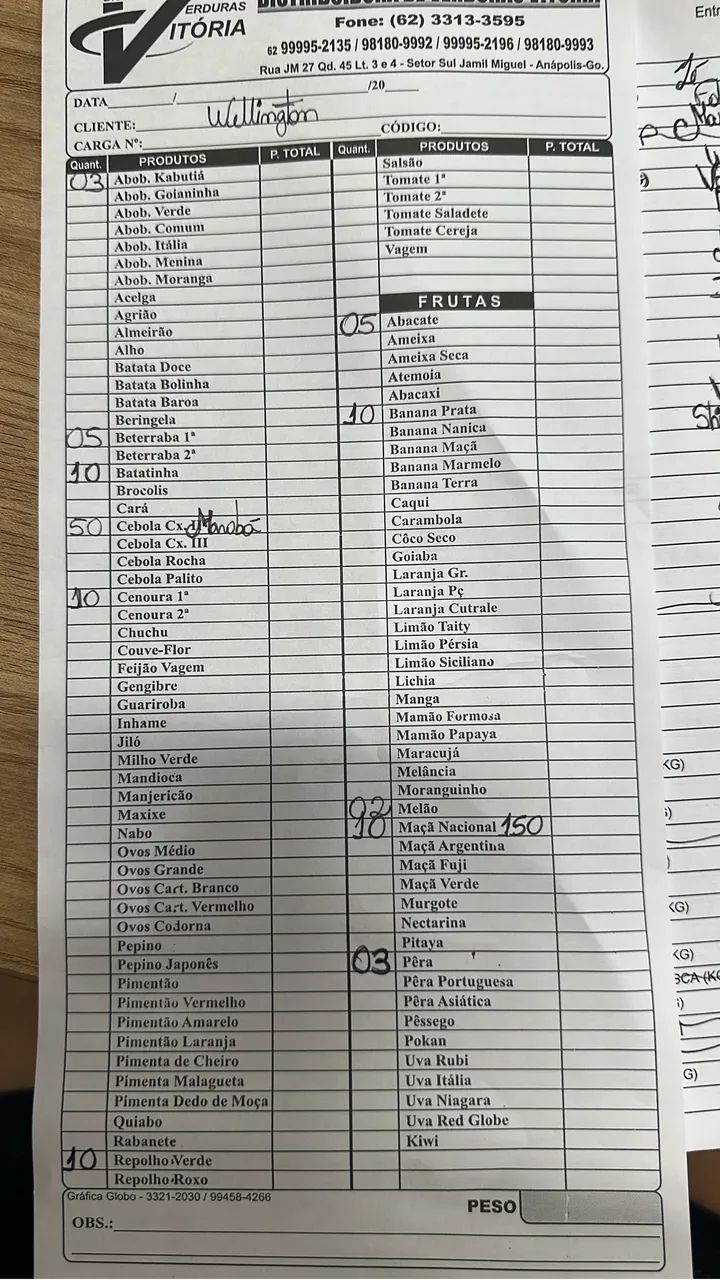 VERDURAS
VITÓRIA
Fone: (62) 3313-3595
62 99995-2135 / 98180-9992 / 99995-2196 / 98180-9993
Rua JM 27 Qd. 45 Lt. 3 e 4 - Setor Sul Jamil Miguel - Anápolis-Go.
DATA / /20
CLIENTE: Wellington CÓDIGO:
CARGA Nº:
Quant. PRODUTOS P. TOTAL
03 Abob. Kabutiá
Abob. Goianinha
Abob. Verde
Abob. Comum
Abob. Itália
Abob. Menina
Abob. Moranga
Acelga
Agrião
Almeirão
Alho
Batata Doce
Batata Bolinha
Batata Baroa
Beringela
05 Beterraba 1ª
Beterraba 2ª
10 Batatinha
Brocolis
Cará
50 Cebola Cx.
Cebola Cx. III
Cebola Rocha
Cebola Palito
10 Cenoura 1ª
Cenoura 2ª
Chuchu
Couve-Flor
Feijão Vagem
Gengibre
Guariroba
Inhame
Jiló
Milho Verde
Mandioca
Manjericão
Maxixe
Nabo
Ovos Médio
Ovos Grande
Ovos Cart. Branco
Ovos Cart. Vermelho
Ovos Codorna
Pepino
Pepino Japonês
Pimentão
Pimentão Vermelho
Pimentão Amarelo
Pimentão Laranja
Pimenta de Cheiro
Pimenta Malagueta
Pimenta Dedo de Moça
Quiabo
Rabanete
10 Repolho Verde
Repolho Roxo
Quant. PRODUTOS P. TOTAL
Salsão
Tomate 1ª
Tomate 2ª
Tomate Saladete
Tomate Cereja
Vagem
FRUTAS
05 Abacate
Ameixa
Ameixa Seca
Atemoia
Abacaxi
10 Banana Prata
Banana Nanica
Banana Maçã
Banana Marmelo
Banana Terra
Caqui
Carambola
Côco Seco
Goiaba
Laranja Gr.
Laranja Pç
Laranja Cutrale
Limão Taity
Limão Pérsia
Limão Siciliano
Lichia
Manga
Mamão Formosa
Mamão Papaya
Maracujá
Melância
Moranguinho
Melão
10 Maçã Nacional 150
Maçã Argentina
Maçã Fuji
Maçã Verde
Murgote
Nectarina
Pitaya
03 Pêra
Pêra Portuguesa
Pêra Asiática
Pêssego
Pokan
Uva Rubi
Uva Itália
Uva Niagara
Uva Red Globe
Kiwi
Gráfica Globo - 3321-2030 / 99458-4266
PESO
OBS.: